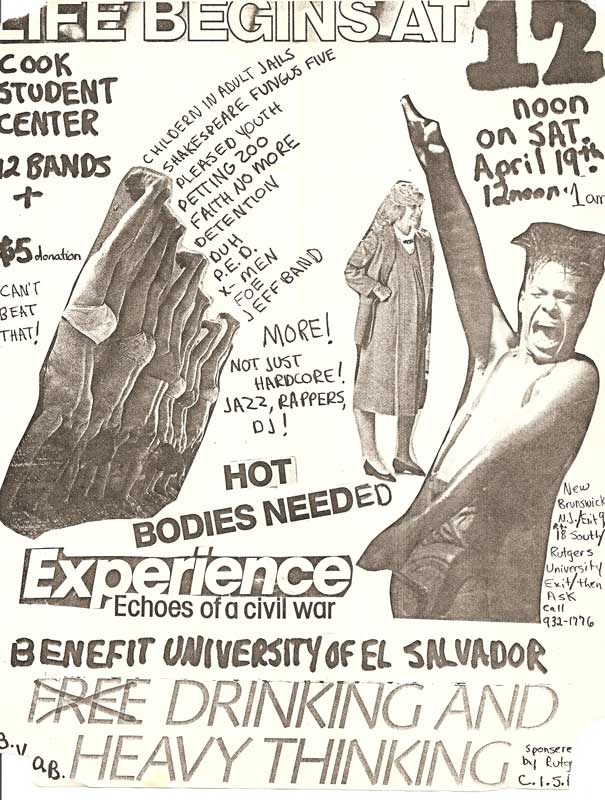 LIFE BEGINS AT 12
COOK
STUDENT
CENTER
12 BANDS
+
$5 donation
CAN'T
BEAT
THAT!
noon
on SAT.
April 19th.
12noon-1am
CHILDERN IN ADULT JAILS
SHAKESPEARE FUNGUS FIVE
PLEASED YOUTH
PETTING ZOO
FAITH NO MORE
DETENTION
DUH!
P.E.D.
X-MEN
FOE
JEFF BAND
MORE!
NOT JUST
HARDCORE!
JAZZ, RAPPERS,
DJ!
HOT
BODIES NEEDED
New
Brunswick
N.J./Exit 9
Rt.
18 South/
Rutgers
University
Exit/then
ASK
call
932-1776
Experience
Echoes of a civil war
BENEFIT UNIVERSITY OF EL SALVADOR
FREE DRINKING AND
HEAVY THINKING
B.Y.O.B.
Sponsere
by Rutg
C.I.S.